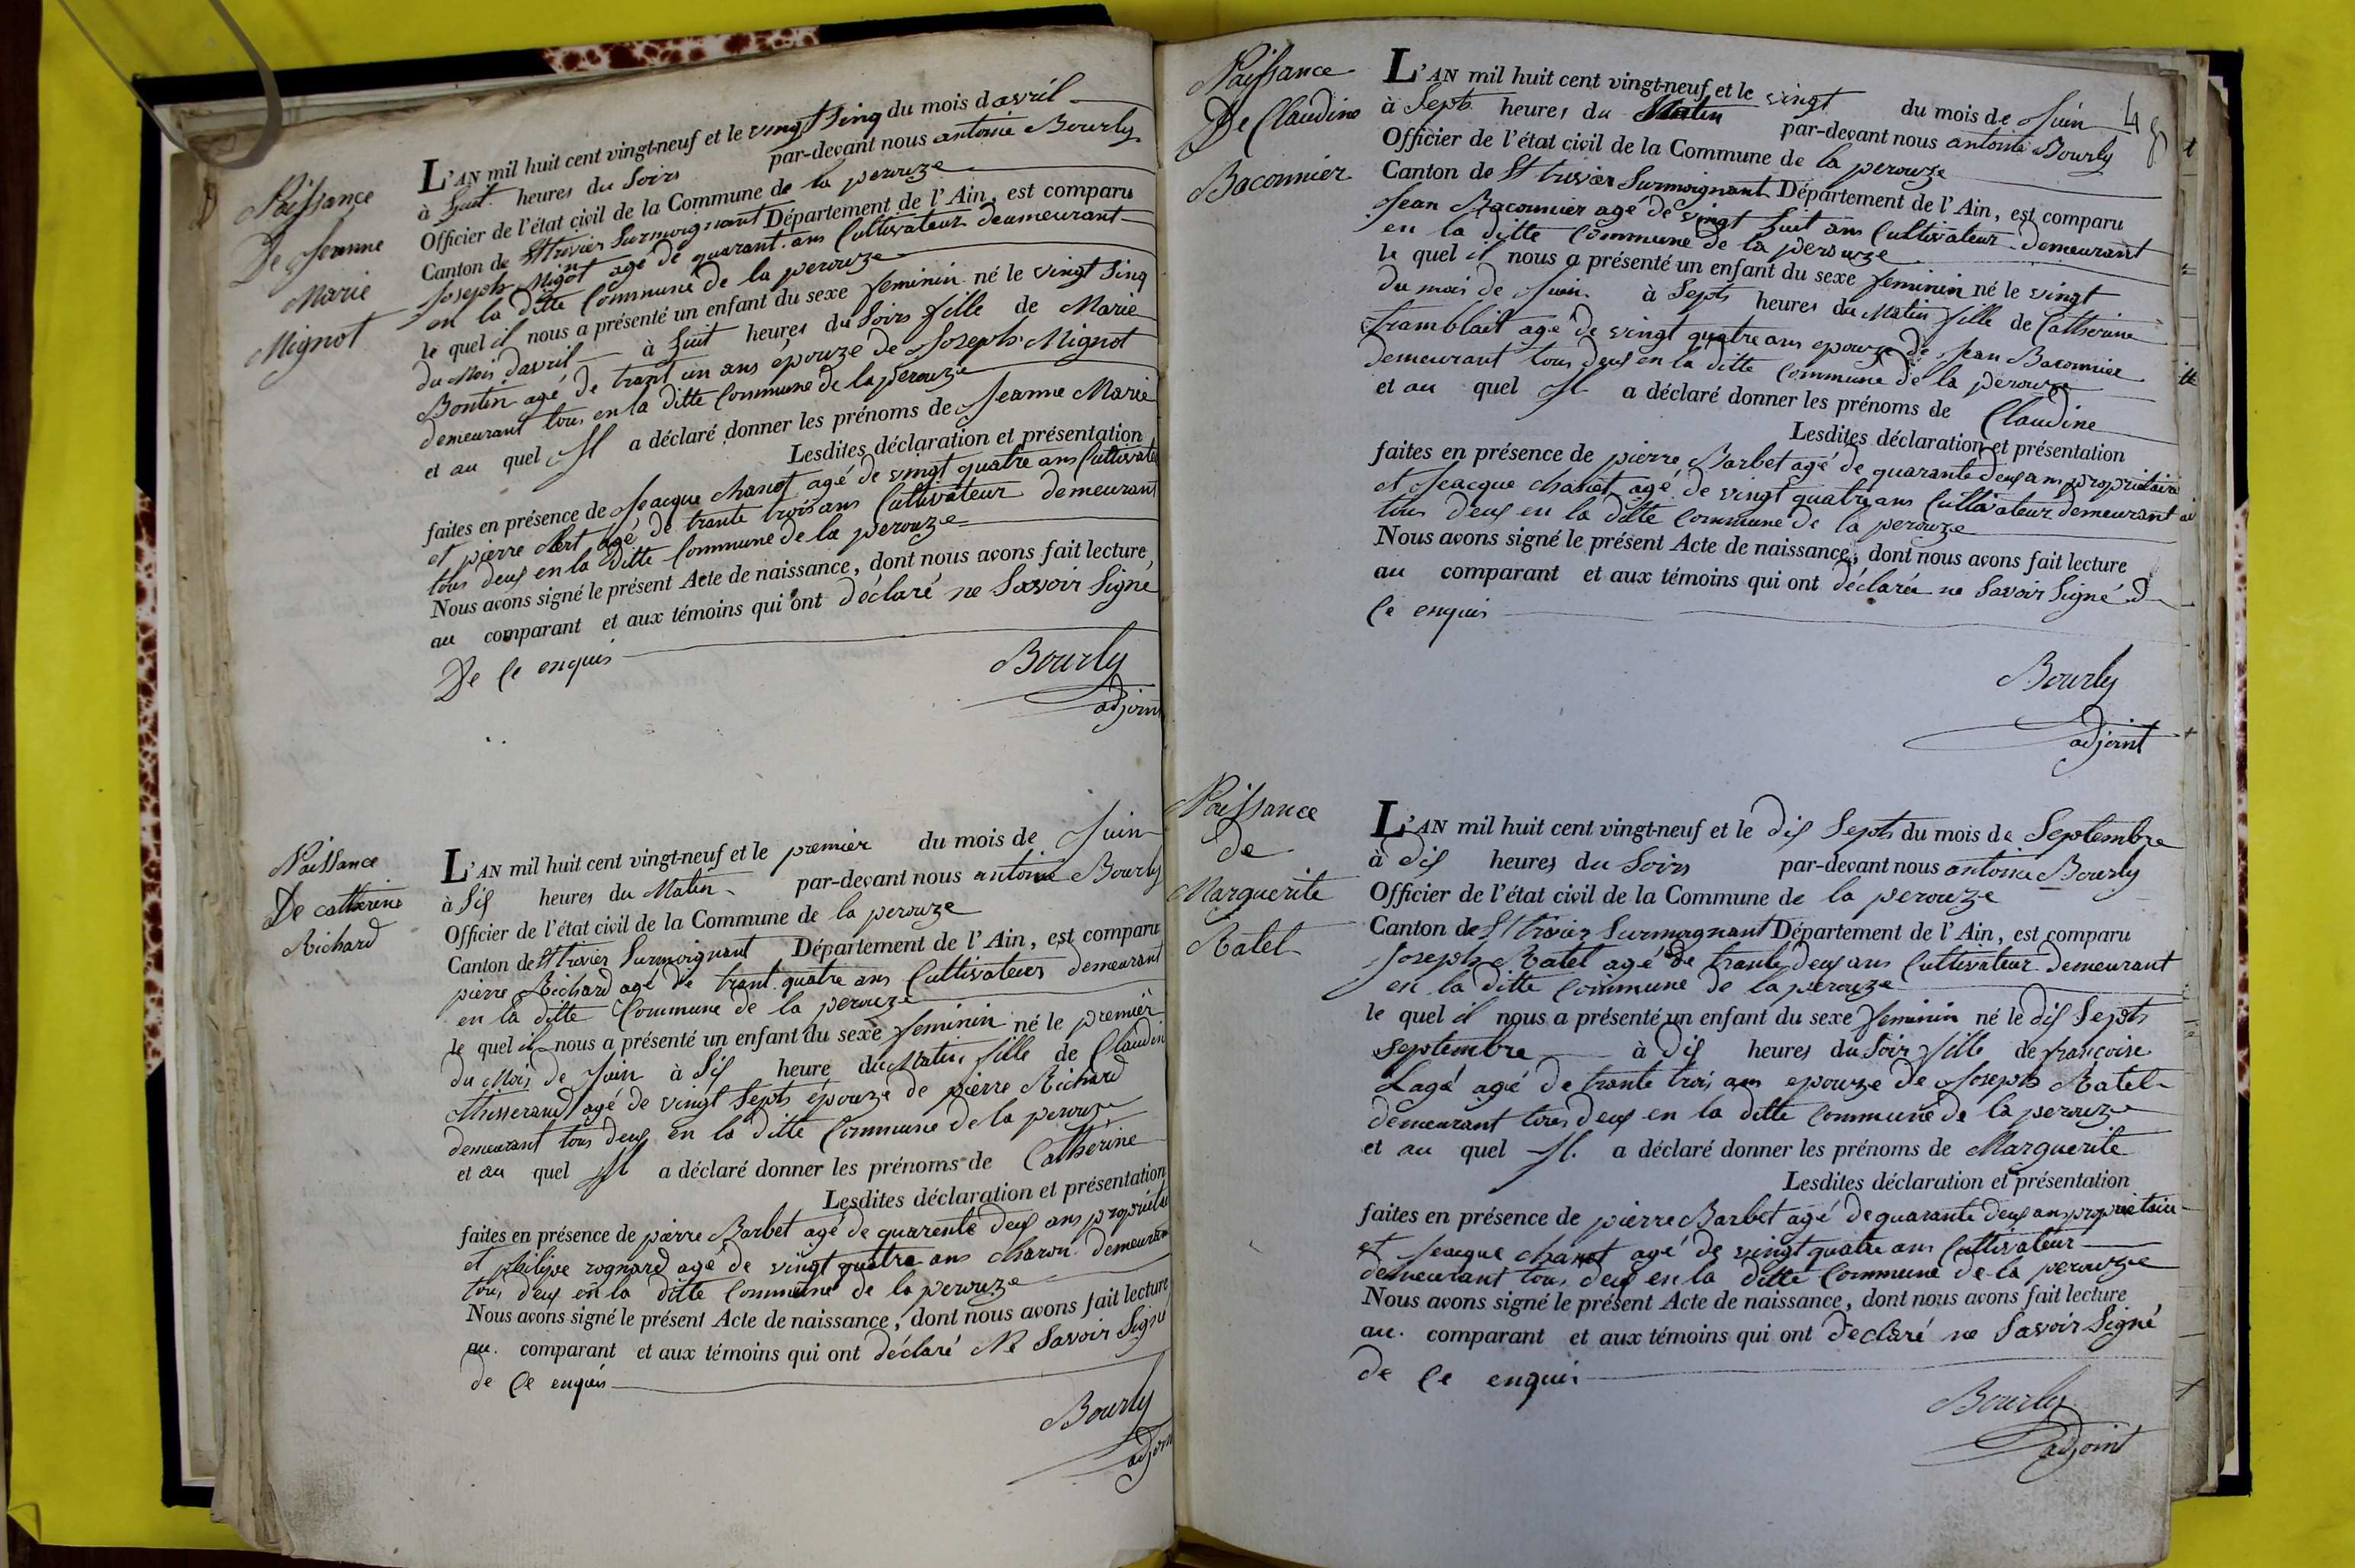 Naissance
De Jeanne
Marie
Mignot
L'AN mil huit cent vingt-neuf et le vingt sinq du mois d avril
à huit heures du Soirs par-devant nous antoine Bourly
Officier de l'état civil de la Commune de la perouze
Canton de St trivier Surmoignant Département de l'Ain, est comparu
Joseph Mignot agé de quarant ans Cultivateur deumeurant
en la ditte Commune de la perouze
le quel il nous a présenté un enfant du sexe feminin né le vingt sinq
du Mois d'avril à huit heures du Soirs fille de Marie
Bontin agé de trant un ans épouze de Joseph Mignot
demeurant tous en la ditte Commune de la perouze
et au quel Il a déclaré donner les prénoms de Jeanne Marie
Lesdites déclaration et présentation
faites en présence de Jeacque chanot agé de vingt quatre ans Cultivate
et pierre agé de trante trois ans Cultivateur demeurant
tous deux en la ditte Commune de la perouze
Nous avons signé le présent Acte de naissance, dont nous avons fait lecture
au comparant et aux témoins qui ont déclaré ne Savoir Signé
De Ce enquis
Bourly
adjoint
Naissance
De catherine
Richard
L'AN mil huit cent vingt-neuf et le premier du mois de Juin
à Six heures du Matin par-devant nous antoine Bourly
Officier de l'état civil de la Commune de la perouze
Canton de St trivier Surmoignant Département de l'Ain, est comparu
pierre Richard agé de trant quatre ans Cultivateur demeurant
en la ditte Commune de la perouze
le quel il nous a présenté un enfant du sexe feminin né le premier
du Mois de Juin à Six heure du Matin fille de Claudin
thisserand agé de vingt Septs épouze de pierre Richard
demeurant tous deux en la ditte Commune de la perouze
et au quel Il a déclaré donner les prénoms de Catherine
Lesdites déclaration et présentation
faites en présence de pierre Barbet agé de quarente deux ans proprietai
et philipe rognard agé de vingt quatre ans charon demeurant
tous deux en la ditte Commune de la perouze
Nous avons signé le présent Acte de naissance, dont nous avons fait lecture
au comparant et aux témoins qui ont déclaré Ne Savoir Signé
de Ce enquis
Bourly
adjoin
Naissance
De Claudine
Baconnier
48
L'AN mil huit cent vingt-neuf et le vingt du mois de Juin
à Septs heures du Matin par-devant nous antoine Bourly
Officier de l'état civil de la Commune de la perouze
Canton de St trivier Surmoignant Département de l'Ain, est comparu
Jean Baconnier agé de vingt huit ans Cultivateur demeurant
en la ditte Commune de la perouze
le quel il nous a présenté un enfant du sexe feminin né le vingt
du mois de Juin à Septs heures du Matin fille de Catherine
tramblait agé de vingt quatre ans epouze de Jean Baconnier
demeurant tous deux en la ditte Commune de la perouze
et au quel Il a déclaré donner les prénoms de Claudine
Lesdites déclaration et présentation
faites en présence de pierre Barbet agé de quarante deux ans propriétaire
et Jeacque chanot agé de vingt quatre ans Cultivateur demeurant
tous deux en la ditte Commune de la perouze
Nous avons signé le présent Acte de naissance, dont nous avons fait lecture
au comparant et aux témoins qui ont déclarée ne Savoir Signé d
Ce enquis
Bourly
adjoint
Naissance
de
Marguerite
Ratel
L'AN mil huit cent vingt-neuf et le dix Septs du mois de Septembre
à dix heures du Soirs par-devant nous antoine Bourly
Officier de l'état civil de la Commune de la perouze
Canton de St trivier Surmognant Département de l'Ain, est comparu
Joseph Ratel agé de trante deux ans Cultivateur demeurant
en la ditte Commune de la perouze
le quel il nous a présenté un enfant du sexe feminin né le dix Septs
septembre à dix heures du Soir fille de françoise
Lagé agé de trante trois ans epouze de Joseph Ratel
demeurant tous deux en la ditte Commune de la perouze
et au quel Il. a déclaré donner les prénoms de Marguerite
Lesdites déclaration et présentation
faites en présence de pierre Barbet agé de quarante deux ans proprietaire
et Jeacque chanot agé de vingt quatre ans Cultivateur
demeurant tous deux en la ditte Commune de la perouze
Nous avons signé le présent Acte de naissance, dont nous avons fait lecture
au. comparant et aux témoins qui ont declaré ne Savoir Signé
de Ce enquis
Bourly
adjoint